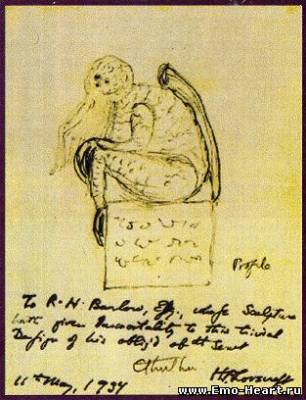 Profile
To R. H. Barlow, Esq., whose Sculpture
hath given Immortality to this trivial
Design of his oblig'd obt Servt
Cthulhu
HPLovecraft
11th May, 1934
www.Emo-Heart.ru